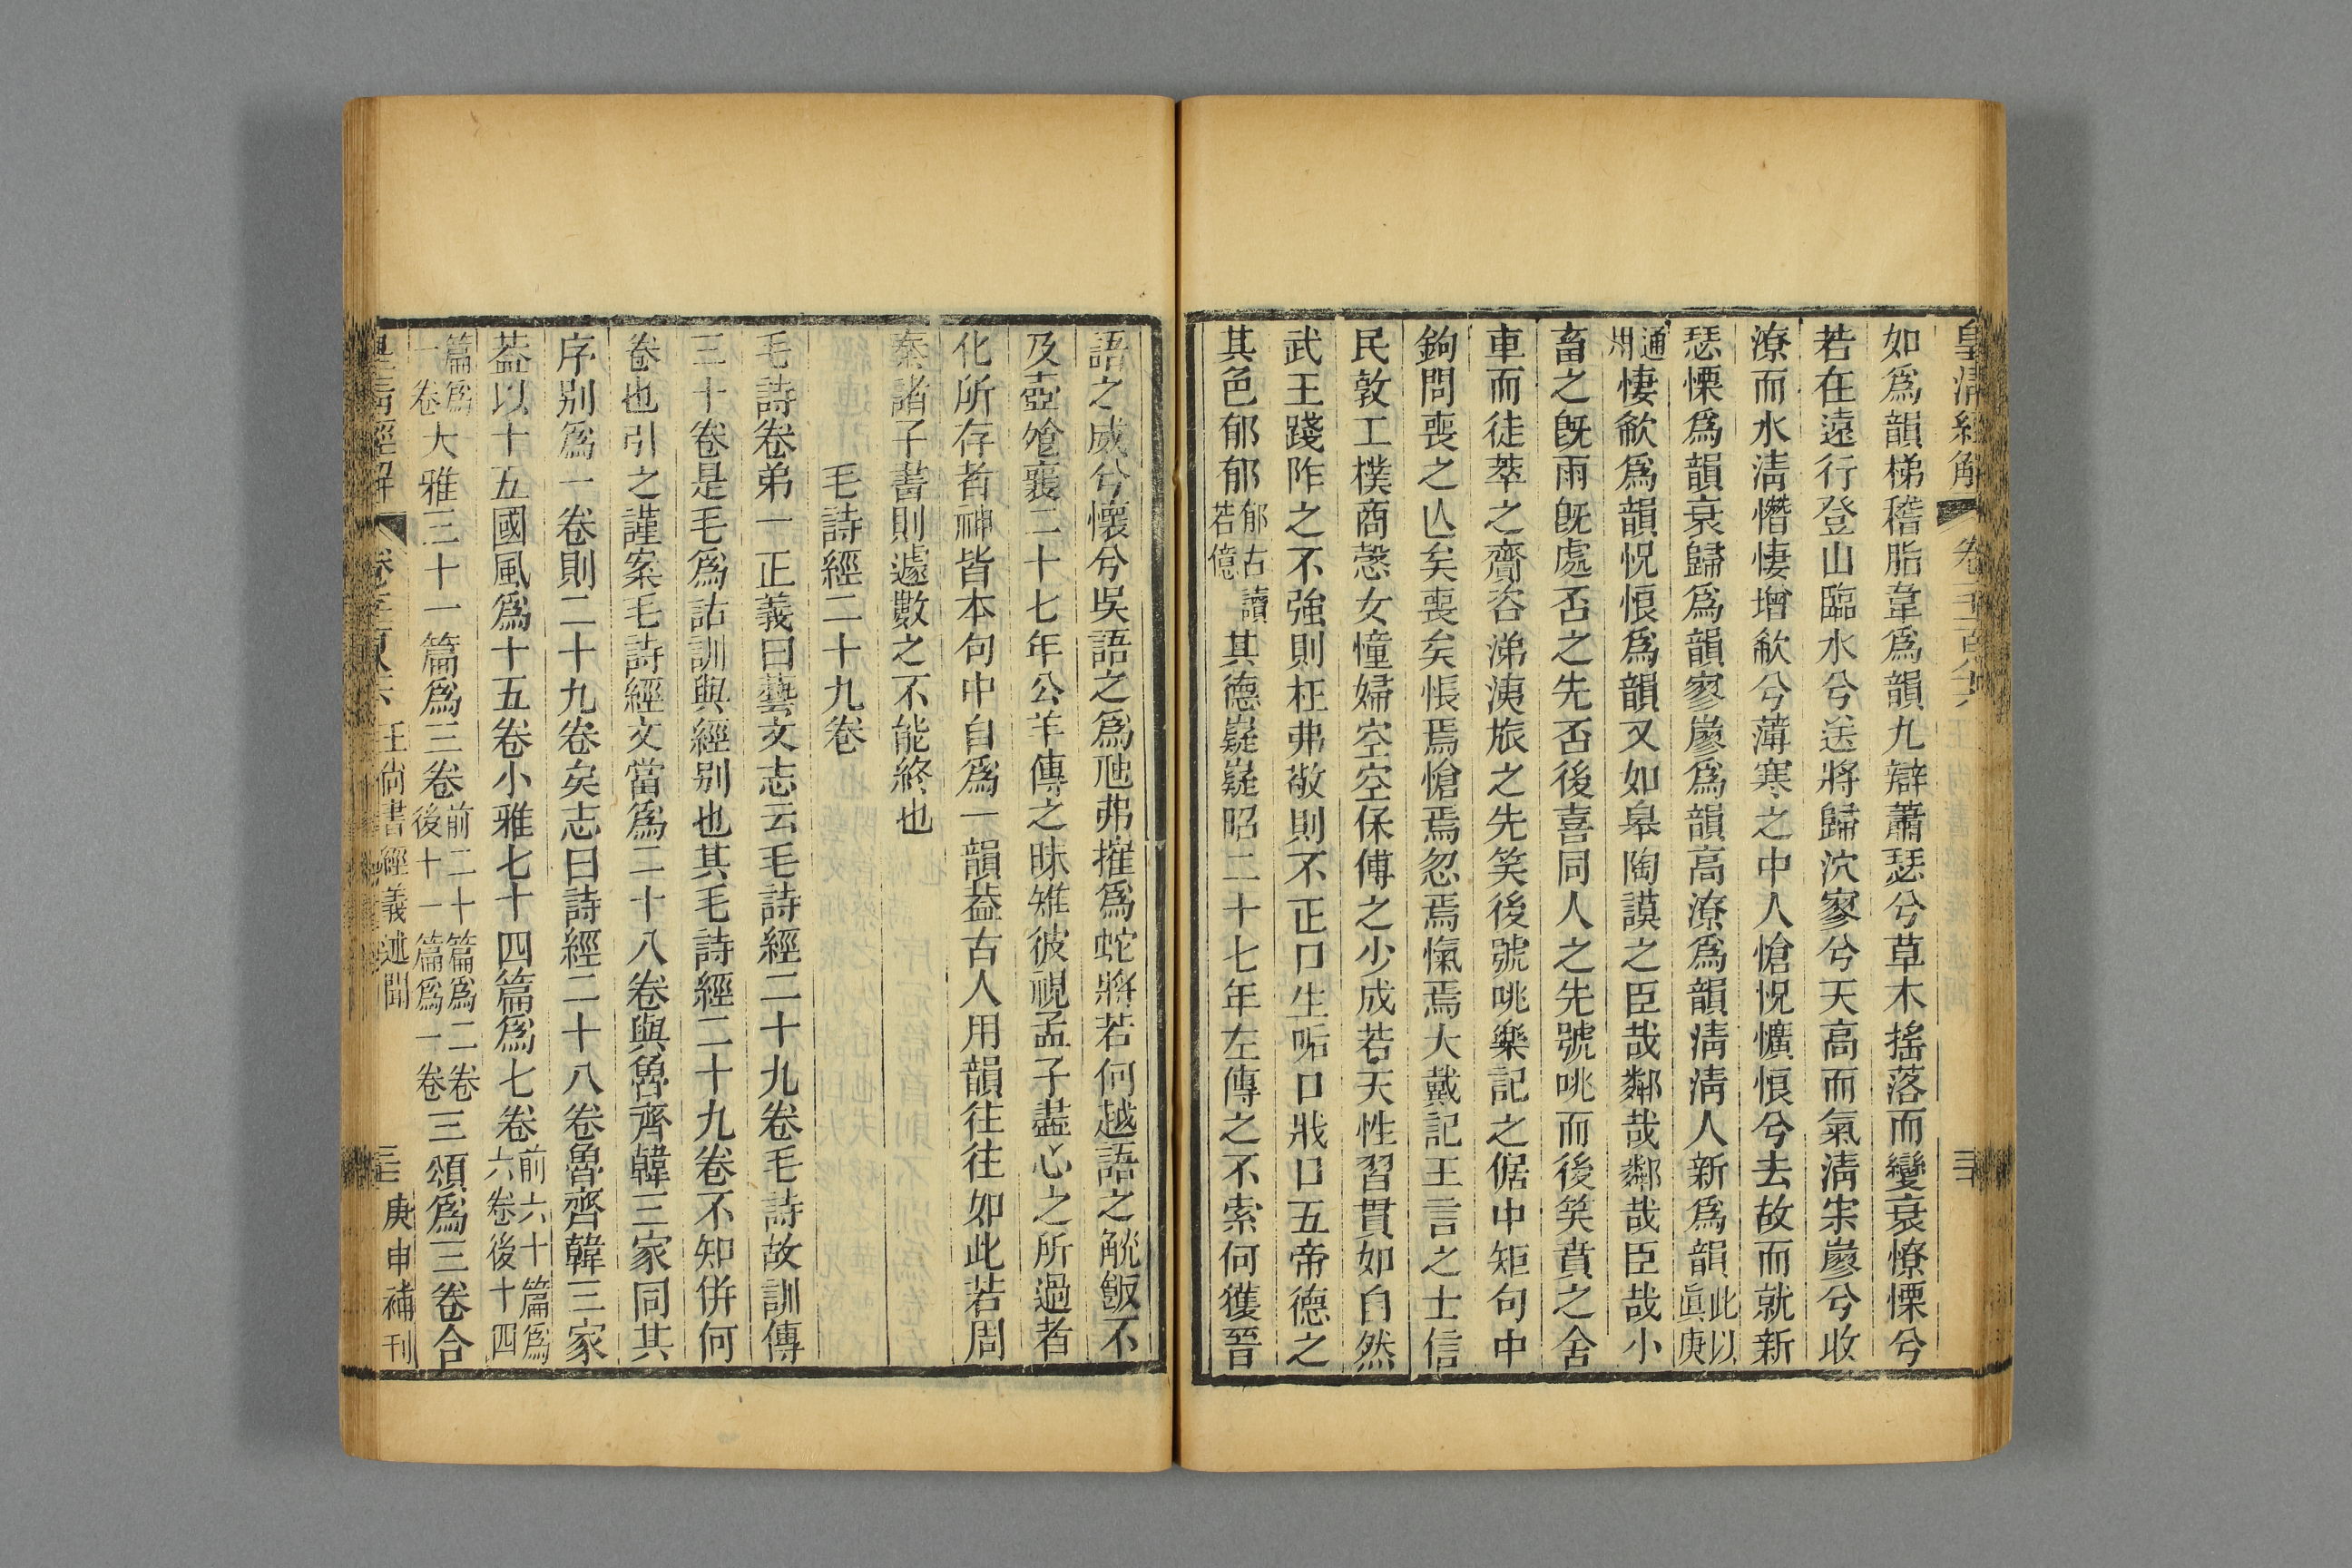 皇清經解 卷
如為韻梯稽脂韋為韻九辯蕭瑟兮草木搖落而變衰憭慄兮
若在遠行登山臨水兮送將歸泬寥兮天高而氣淸宋廫兮收
潦而水淸憯悽增欷兮薄寒之中人愴怳懭悢兮去故而就新
瑟慄為韻衰歸為韻寥廫為韻高潦為韻淸淸人新為韻此以眞庚
通用悽欷為韻怳悢為韻又如皋陶謨之臣哉鄰哉鄰哉臣哉小
畜之旣雨旣處否之先否後喜同人之先號咷而後笑賁之舍
車而徒萃之齎咨涕洟旅之先笑後號咷樂記之倨中矩句中
鉤問喪之亾矣喪矣悵焉愴焉忽焉愾焉大戴記王言之士信
民敦工樸商慤女憧婦空空保傅之少成若天性習貫如自然
武王踐阼之不強則枉弗敬則不正口生㖃口戕口五帝德之
其色郁郁郁古讀若億其德嶷嶷昭二十七年左傳之不索何獲晉
語之威兮懷兮吳語之為虺弗摧為蛇將若何越語之觥飯不
及壺飧襄二十七年公羊傳之昧雉彼視孟子盡心之所過者
化所存者神皆本句中自為一韻葢古人用韻往往如此若周
秦諸子書則遽數之不能終也
毛詩經二十九卷
毛詩卷弟一正義曰藝文志云毛詩經二十九卷毛詩故訓傳
三十卷是毛為詁訓與經别也其毛詩經二十九卷不知併何
卷也引之謹案毛詩經文當為二十八卷與魯齊韓三家同其
序别為一卷則二十九卷矣志曰詩經二十八卷魯齊韓三家
葢以十五國風為十五卷小雅七十四篇為七卷前六十篇為六卷後十四
篇為一卷大雅三十一篇為三卷前二十篇為二卷後十一篇為一卷三頌為三卷合
皇清經解 王尙書經義述聞 庚申補刊